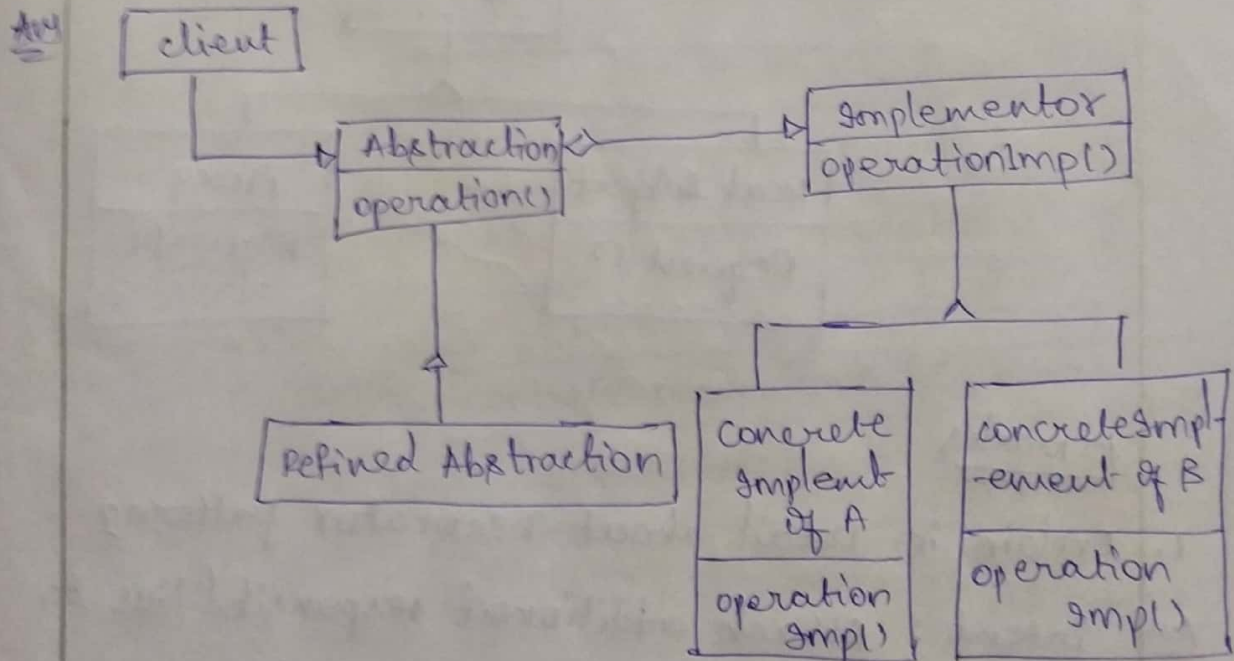 client
Abstraction
operation()
Implementor
operationImp()
Refined Abstraction
concrete
Implemt
of A
operation
Imp()
concreteImpl-
-ement of B
operation
Imp()